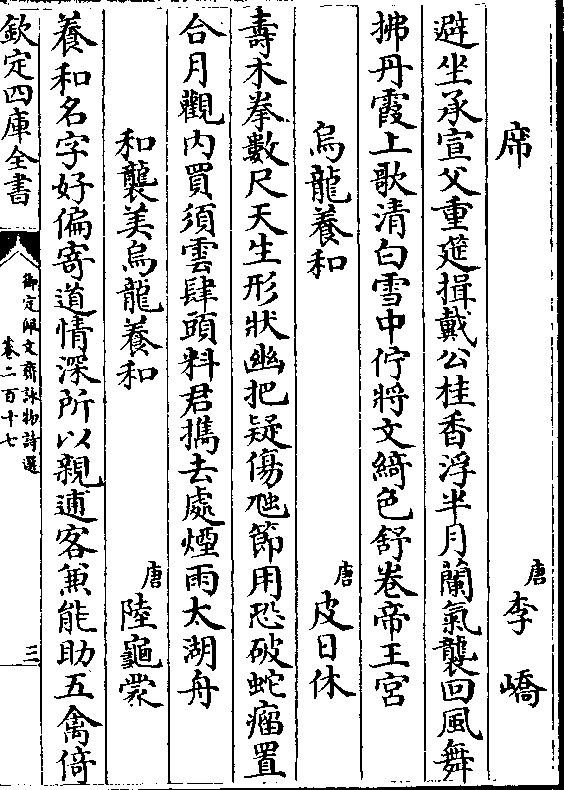 席 唐 李嶠
避坐承宣父重筵揖戴公桂香浮半月蘭氣襲回風舞
拂丹霞上歌清白雪中佇將文綺色舒卷帝王宮
烏龍養和 唐 皮日休
壽木拳數尺天生形狀幽把疑傷虺節用恐破蛇瘤置
合月觀內買須雲肆頭料君攜去處煙雨太湖舟
和襲美烏龍養和 唐 陸龜蒙
養和名字好偏寄道情深所以親逋客兼能助五禽倚
欽定四庫全書
御定佩文齋詠物詩選
卷二百十七
三